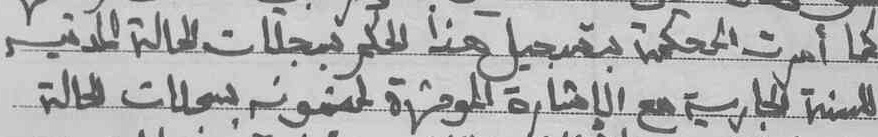 كما أمرت المحكمة بتسجيل هذا الحكم بسجلات الحالة المدنية
للسنة الجارية مع الإشارة الموجزة لمضمونه بسجلات الحالة